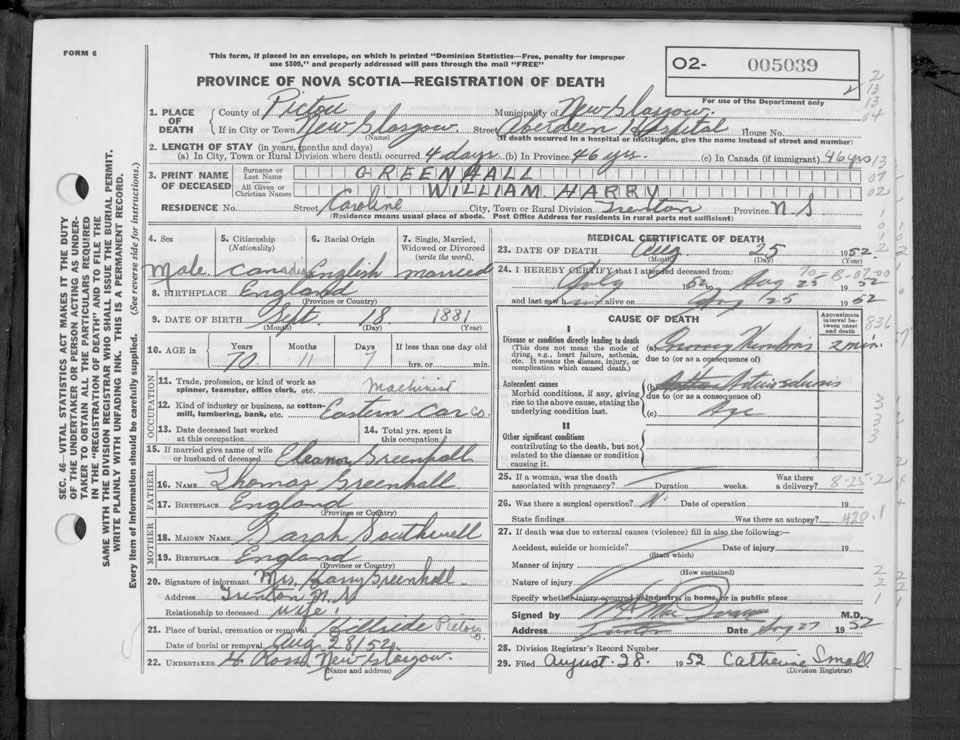 FORM 6
This form, if placed in an envelope, on which is printed "Dominion Statistics—Free, penalty for improper
use $300," and properly addressed will pass through the mail "FREE"
PROVINCE OF NOVA SCOTIA—REGISTRATION OF DEATH
O2- 005039
For use of the Department only
1. PLACE OF DEATH County of Pictou Municipality of New Glasgow.
If in City or Town New Glasgow. Street Aberdeen Hospital House No.
(Name) (If death occurred in a hospital or institution, give the name instead of street and number)
2. LENGTH OF STAY (in years, months and days)
(a) In City, Town or Rural Division where death occurred 4 days (b) In Province 46 yr. (c) In Canada (if immigrant) 46 yrs
3. PRINT NAME OF DECEASED Surname or Last Name GREENHALL
All Given or Christian Names WILLIAM HARRY
RESIDENCE No. Street Caroline City, Town or Rural Division Trenton Province N.S.
(Residence means usual place of abode. Post Office Address for residents in rural parts not sufficient)
4. Sex 5. Citizenship (Nationality) 6. Racial Origin 7. Single, Married, Widowed or Divorced (write the word).
Male Canadian English married
8. BIRTHPLACE England
(Province or Country)
9. DATE OF BIRTH Sept. 18 1881
(Month) (Day) (Year)
10. AGE in Years Months Days If less than one day old
70 11 7 hrs. or min.
OCCUPATION
11. Trade, profession, or kind of work as spinner, teamster, office clerk, etc. Machinist
12. Kind of industry or business, as cotton-mill, lumbering, bank, etc. Eastern Car Co.
13. Date deceased last worked at this occupation 14. Total yrs. spent in this occupation
15. If married give name of wife or husband of deceased Eleanor Greenhall
FATHER
16. NAME Thomas Greenhall
17. BIRTHPLACE England
(Province or Country)
MOTHER
18. MAIDEN NAME Sarah Southwell
19. BIRTHPLACE England
(Province or Country)
20. Signature of informant Mrs. Harry Greenhall
Address Trenton N.S.
Relationship to deceased wife
21. Place of burial, cremation or removal Hillside Pictou
Date of burial or removal Aug 28/52
22. UNDERTAKER H. Ross New Glasgow.
(Name and address)
MEDICAL CERTIFICATE OF DEATH
23. DATE OF DEATH Aug 25 1952
(Month) (Day) (Year)
24. I HEREBY CERTIFY that I attended deceased from:
July 1952 to Aug 25 1952
and last saw him alive on Aug 25 1952
CAUSE OF DEATH
Approximate interval between onset and death
I
Disease or condition directly leading to death (a) Coronary Thrombosis 2 min.
(This does not mean the mode of dying, e.g., heart failure, asthenia, etc. It means the disease, injury, or complication which caused death.)
due to (or as a consequence of)
Antecedent causes (b) Arteriosclerosis
Morbid conditions, if any, giving rise to the above cause, stating the underlying condition last.
due to (or as a consequence of)
(c) Age
II
Other significant conditions
contributing to the death, but not related to the disease or condition causing it.
25. If a woman, was the death associated with pregnancy? Duration weeks. Was there a delivery? 8-25-2
26. Was there a surgical operation? N. Date of operation 19
State findings Was there an autopsy? 420.1
27. If death was due to external causes (violence) fill in also the following:—
Accident, suicide or homicide? Date of injury 19
(State which)
Manner of injury
(How sustained)
Nature of injury
Specify whether injury occurred in industry, in home, or in public place
Signed by M.D.
Address Trenton Date Aug 27 1952
28. Division Registrar's Record Number
29. Filed August 28. 1952 Catherine Small
(Division Registrar)
SEC. 46—VITAL STATISTICS ACT MAKES IT THE DUTY
OF THE UNDERTAKER OR PERSON ACTING AS UNDER-
TAKER TO OBTAIN ALL THE PARTICULARS REQUIRED
IN THE "REGISTRATION OF DEATH" AND TO FILE THE
SAME WITH THE DIVISION REGISTRAR WHO SHALL ISSUE THE BURIAL PERMIT.
WRITE PLAINLY WITH UNFADING INK. THIS IS A PERMANENT RECORD.
Every item of information should be carefully supplied. (See reverse side for instructions.)